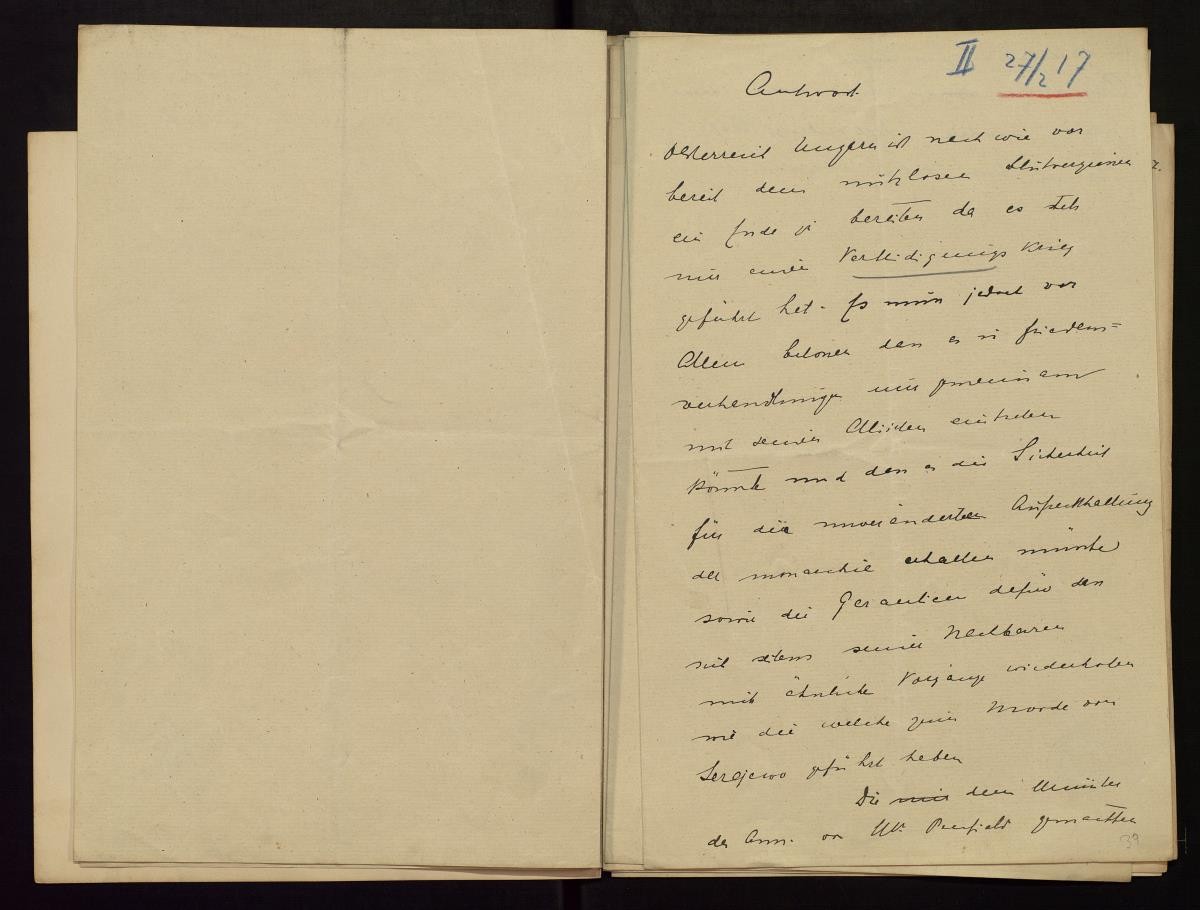 II 27/2 17
Antwort
Österreich Ungarn ist nach wie vor
bereit dem nutzlosen Blutvergiessen
ein Ende zu bereiten da es stets
nur einen Verteidigungs Krieg
geführt hat. Es muss jedoch vor
Allem betonen dass es in Friedens=
verhandlungen nur gemeinsam
mit seinen Alliirten eintreten
könnte und dass es die Sicherheit
für die unveränderten Aufrechthaltung
der Monarchie erhalten müsste
sowie die Garantieen dafür dass
sich seitens seiner Nachbaren
nicht ähnliche Vorgänge wiederholen
wie die welche zum Morde von
Serajewo geführt haben
Die mir dem Minister
des Äuss. von Mr. Penfield gemachten
39